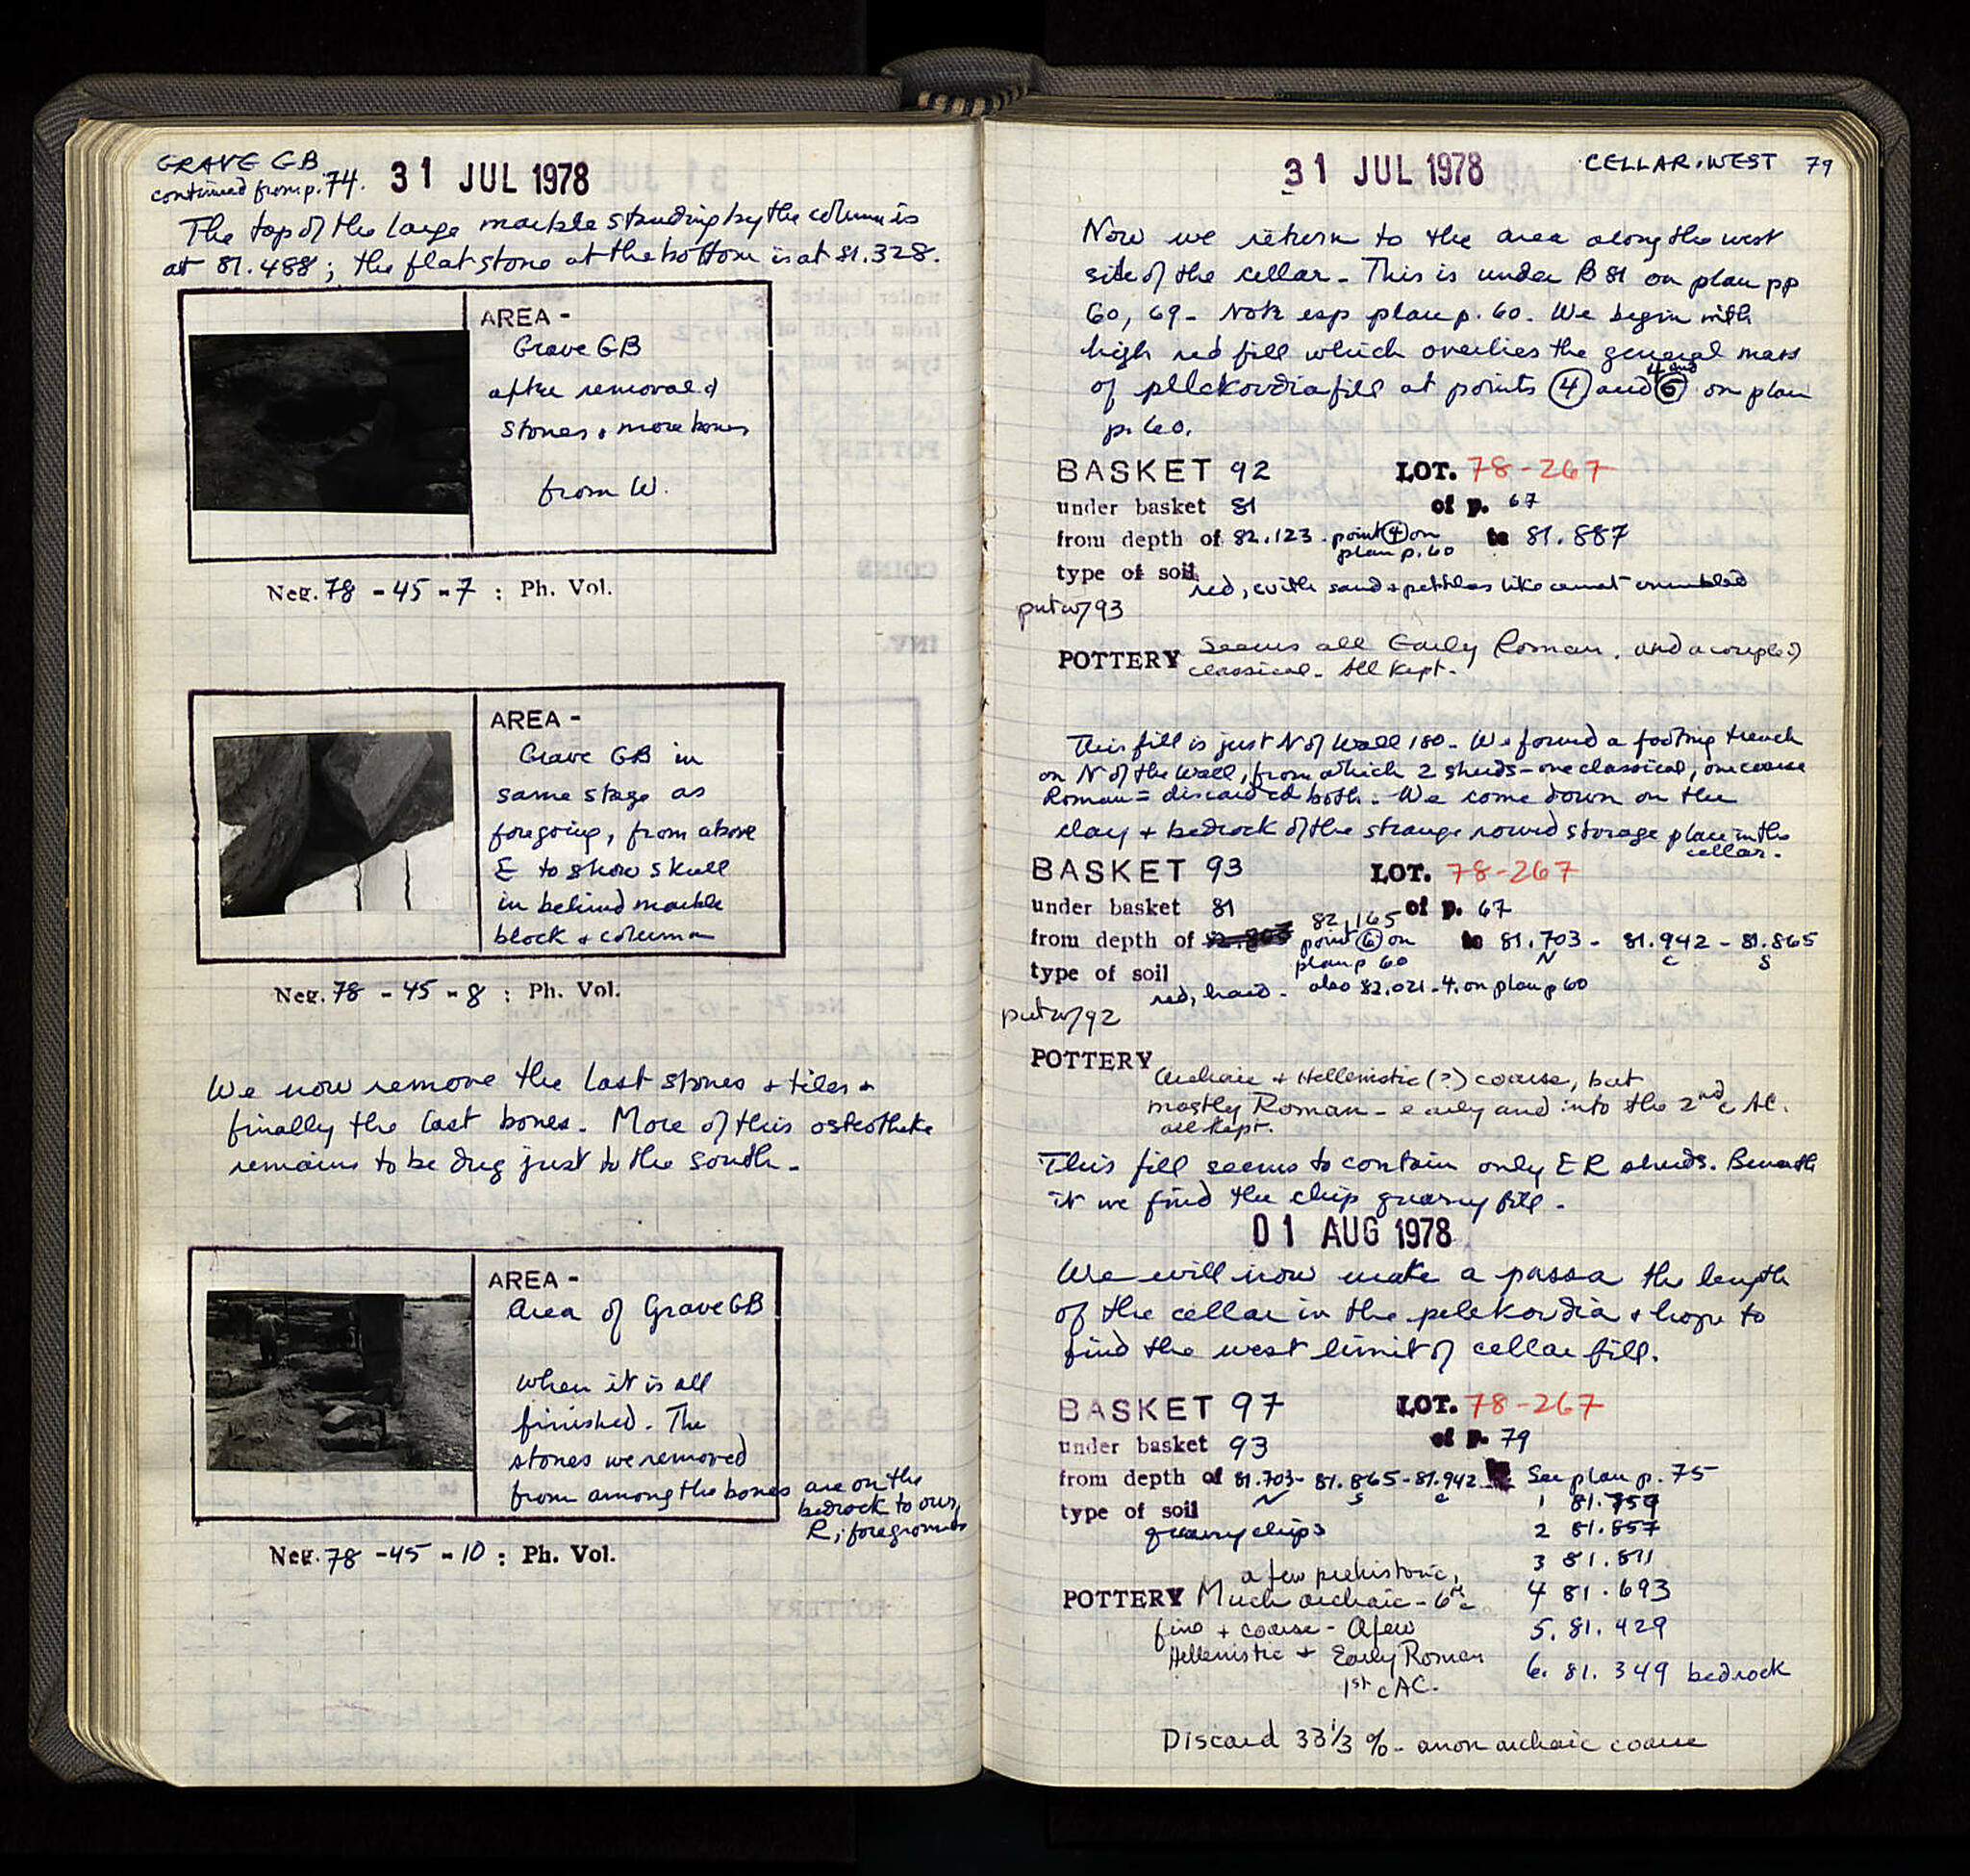 GRAVE GB
continued from p. 74. 31 JUL 1978
The top of the large marble standing by the column is
at 81.488; the flat stone at the bottom is at 81.328.
AREA -
Grave GB
after removal of
stones + more bones
from W.
Neg. 78 - 45 - 7 : Ph. Vol.
AREA -
Grave GB in
same stage as
foregoing, from above
E to show skull
in behind marble
block + column
Neg. 78 - 45 - 8 : Ph. Vol.
We now remove the last stones + tiles +
finally the last bones. More of this osteotheke
remains to be dug just to the south.
AREA -
Area of Grave GB
when it is all
finished. The
stones we removed
from among the bones are on the
bedrock to our
R; foreground
Neg. 78 - 45 - 10 : Ph. Vol.
31 JUL 1978 CELLAR . WEST 79
Now we return to the area along the west
side of the cellar - This is under B 81 on plan pp
60, 69 - Note esp plan p. 60. We begin with
high red fill which overlies the general mass
of pelekoudia fill at points 4 and 6 on plan
p. 60.
BASKET 92 LOT. 78-267
under basket 81 of p. 67
from depth of 82.123 . point 4 on to 81.887
plan p. 60
type of soil red, with sand + pebbles like cement crumbled
put w/ 93
POTTERY Seems all Early Roman, and a couple of
classical - All kept.
This fill is just N of Wall 180 - We found a footing trench
on N of the Wall, from which 2 sherds - one classical, one coarse
Roman = discarded both. We come down on the
clay + bedrock of the strange round storage place in the
cellar.
BASKET 93 LOT. 78-267
under basket 81 of p. 67
from depth of 82,165 point 6 on to 81.703 - 81.942 - 81.865
plan p 60 N C S
type of soil red, hard - also 82.021 - 4. on plan p 60
put w/ 92
POTTERY Archaic + Hellenistic (?) coarse, but
mostly Roman - early and into the 2nd c AC.
all kept.
This fill seems to contain only ER sherds. Beneath
it we find the chip quarry fill.
01 AUG 1978
We will now make a passa the length
of the cellar in the pelekoudia + hope to
find the west limit of cellar fill.
BASKET 97 LOT. 78-267
under basket 93 of p. 79
from depth of 81.703 - 81.865 - 81.942 See plan p. 75
N S C
type of soil quarry chips
1 81.759
2 81.857
3 81.811
4 81.693
5. 81.429
6. 81.349 bedrock
a few prehistoric,
POTTERY Much archaic - 6th c
fine + coarse - A few
Hellenistic + Early Roman
1st c AC.
Discard 33 1/3 % - anon archaic coarse